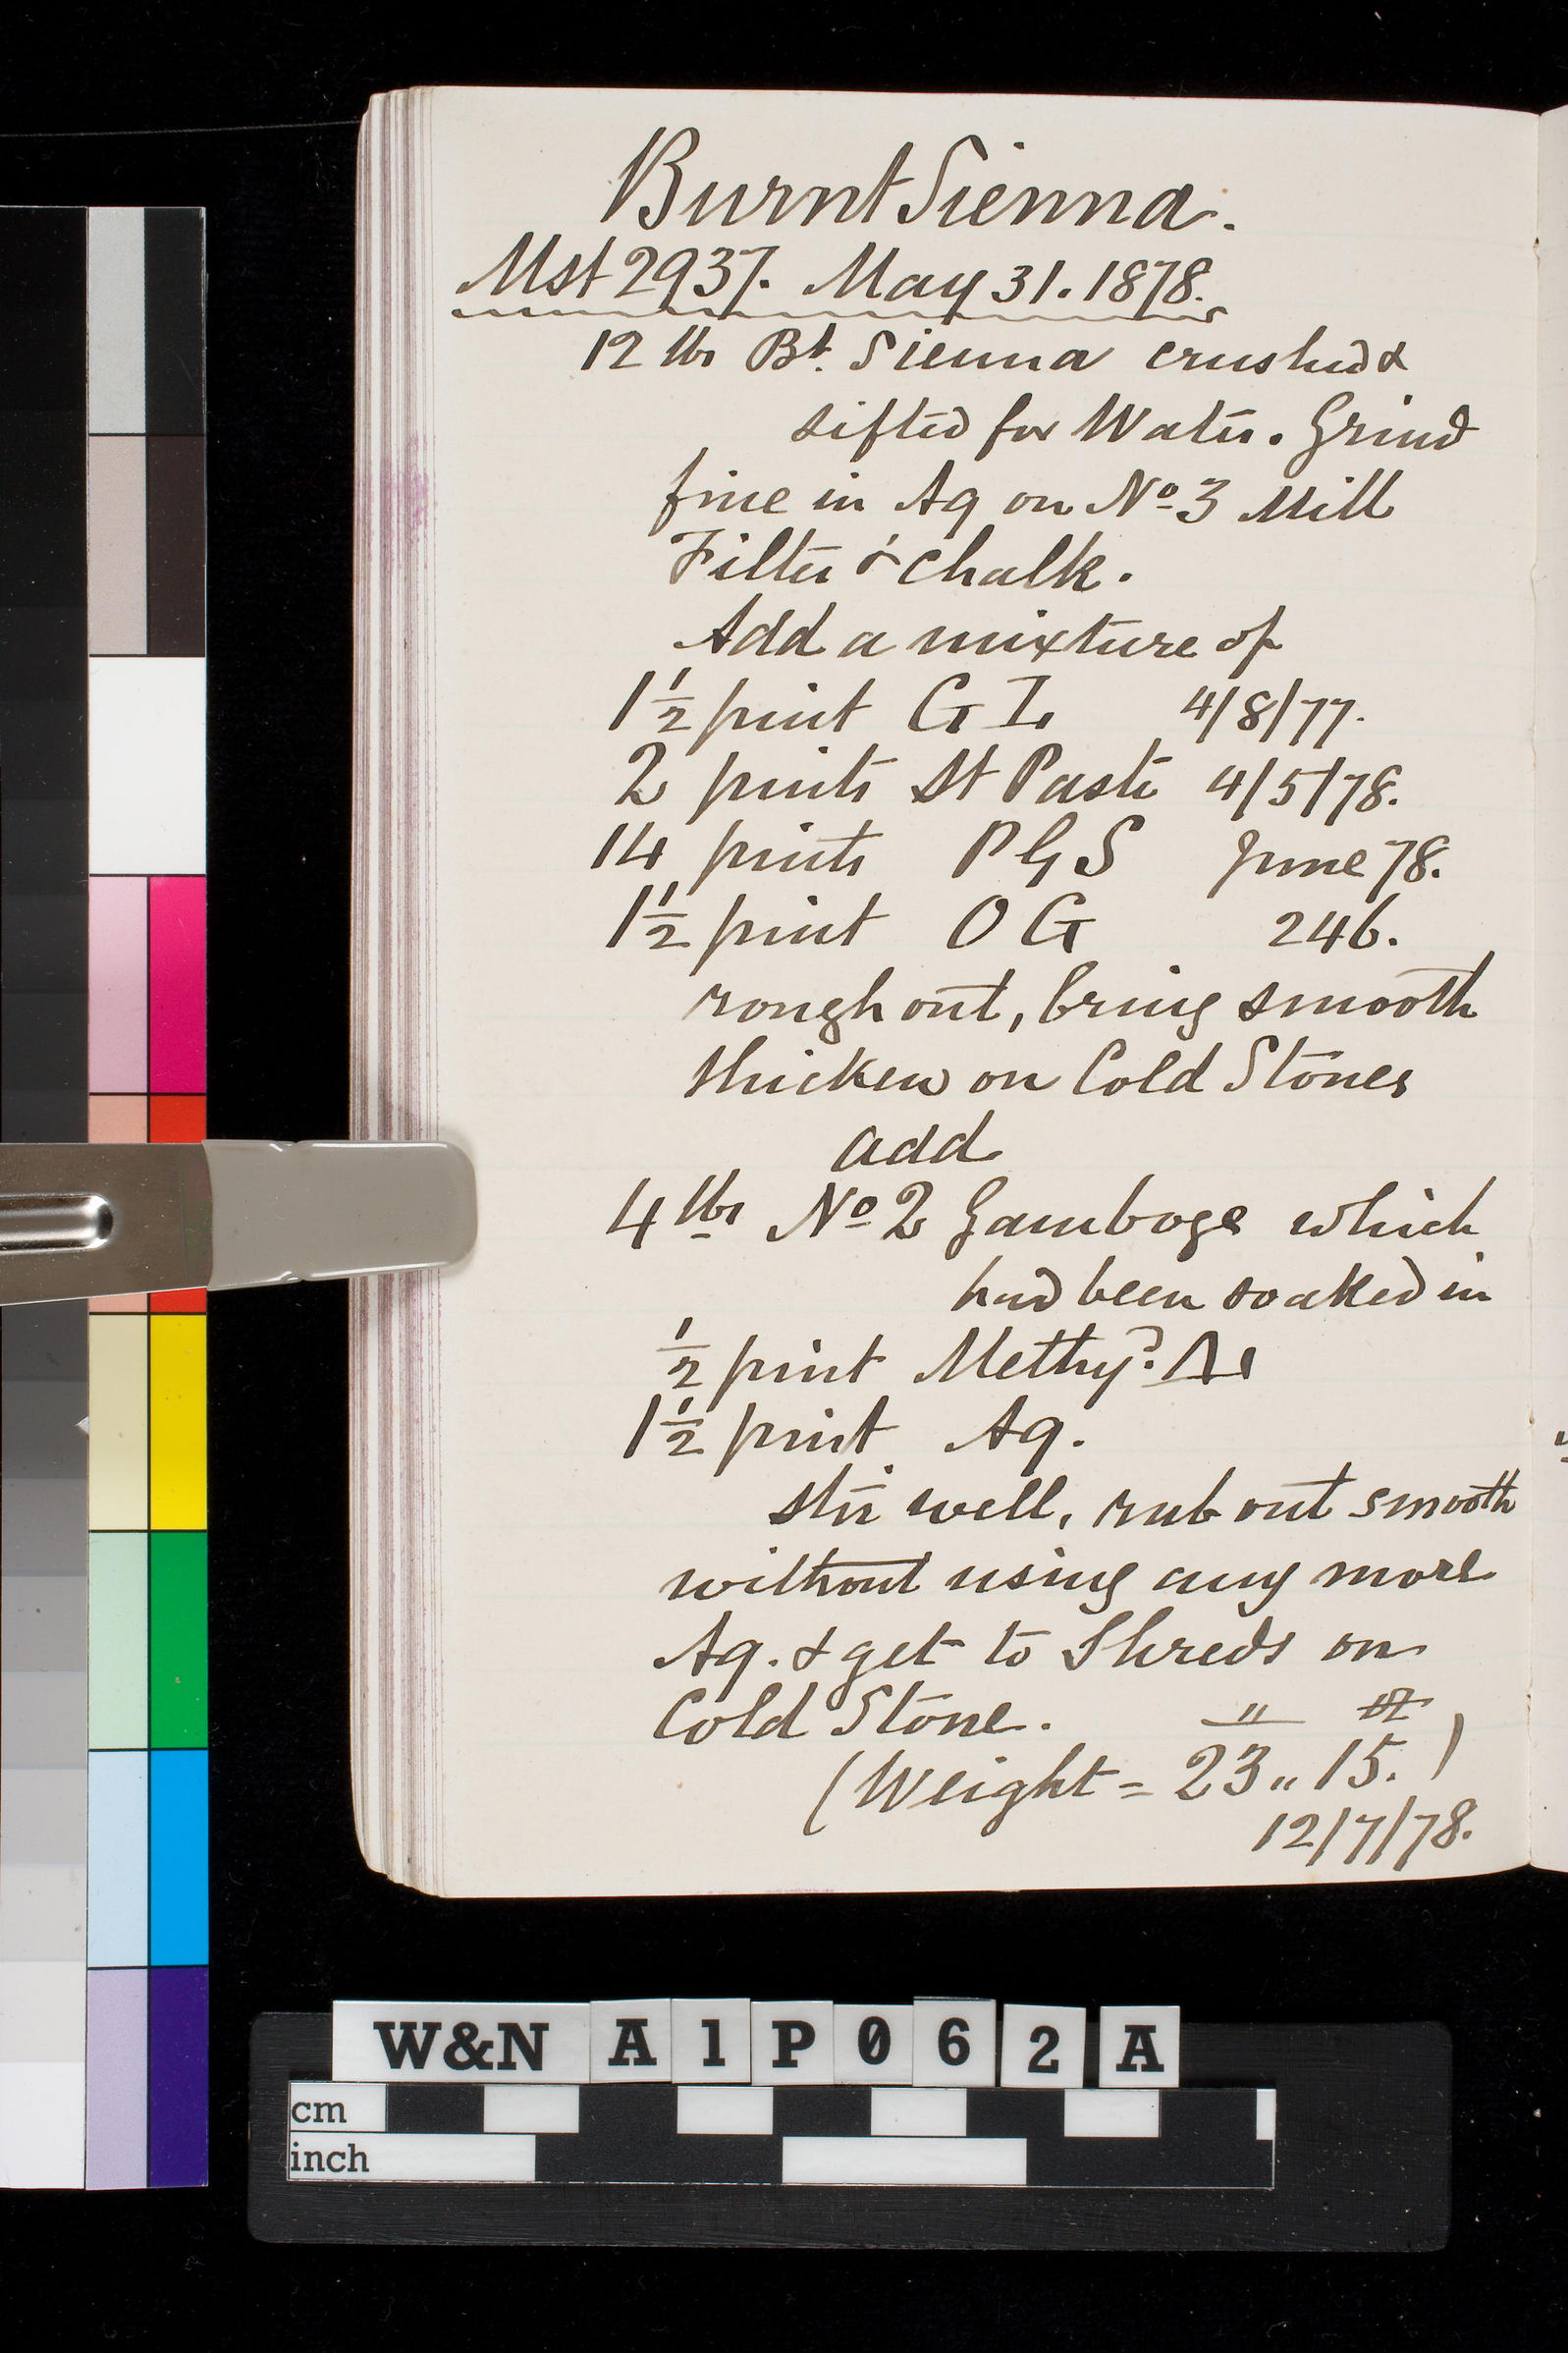 Burnt Sienna.
Mst 2937. May 31. 1878.
12 lbs Bt. Sienna crushed &
sifted for Water. Grind
fine in Aq on No 3 Mill
Filter & chalk.
Add a mixture of
1 1/2 pint G I. 4/8/77.
2 pints St Paste 4/5/78.
14 pints P G S June 78.
1 1/2 pint O G 246.
rough out, bring smooth
thicken on Cold Stones
add
4 lbs No 2 Gamboge which
had been soaked in
1/2 pint Methyd.
1 1/2 pint Aq.
stir well, rub out smooth
without using any more
Aq. & get to Shreds on
Cold Stone.
(Weight = 23 " 15.)
12/7/78.
W&N A1P062A
cm
inch